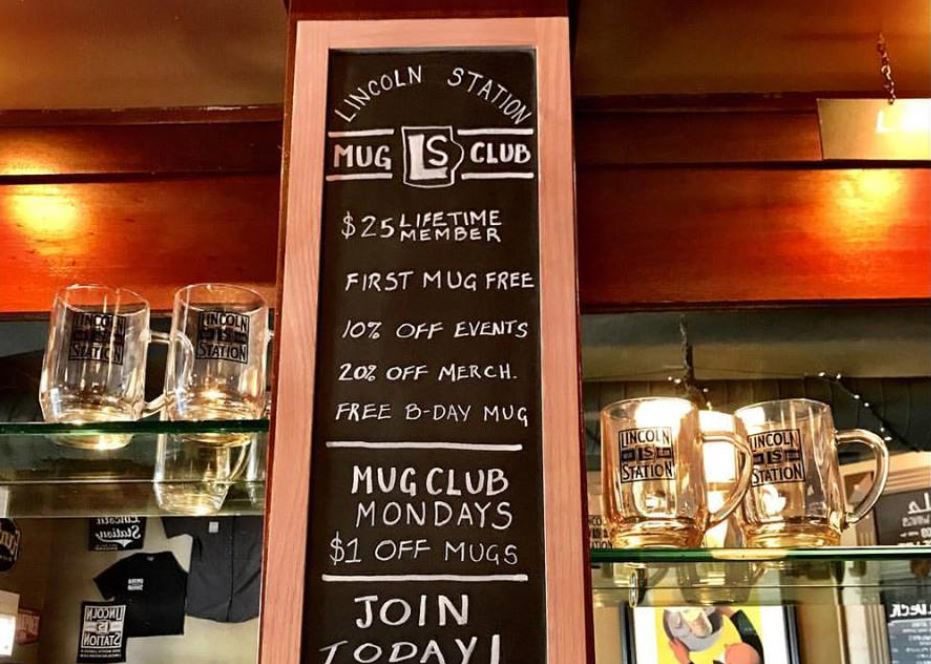 LINCOLN STATION
MUG LS CLUB
$25 LIFETIME MEMBER
FIRST MUG FREE
10% OFF EVENTS
20% OFF MERCH.
FREE B-DAY MUG
MUG CLUB
MONDAYS
$1 OFF MUGS
JOIN
TODAY!
LINCOLN
LS
STATION
LINCOLN
LS
STATION
LINCOLN
LS
STATION
LINCOLN
LS
STATION
Lincoln
Station
LINCOLN
LS
STATION